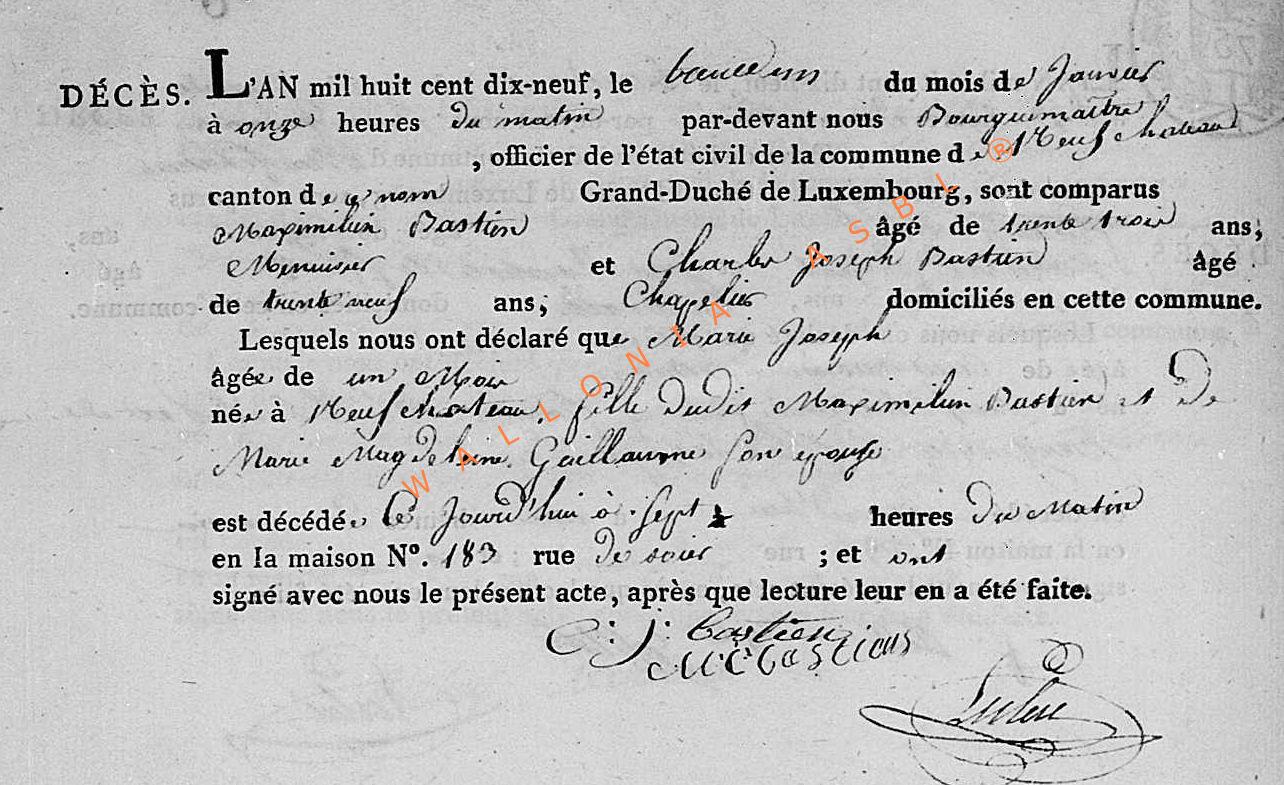 DÉCÈS. L'AN mil huit cent dix-neuf, le du mois de Janvier
à onze heures du matin par-devant nous Bourguemaitre
, officier de l'état civil de la commune de Neufchateau
canton de ce nom Grand-Duché de Luxembourg, sont comparus
Maximilien Bastien âgé de trente trois ans,
Menuisier et Charles Joseph Bastien âgé
de trente neuf ans, Chapelier domiciliés en cette commune.
Lesquels nous ont déclaré que Marie Joseph
âgée de un Mois
née à Neufchateau, fille dudit Maximilien Bastien et de
Marie Magdeleine Guillaume son épouse
est décédée Ce Jourd'hui à Sept heures du Matin
en la maison N°. 183 rue ; et ont
signé avec nous le présent acte, après que lecture leur en a été faite.
C: J: Bastien
WALLONIA ASBL ®